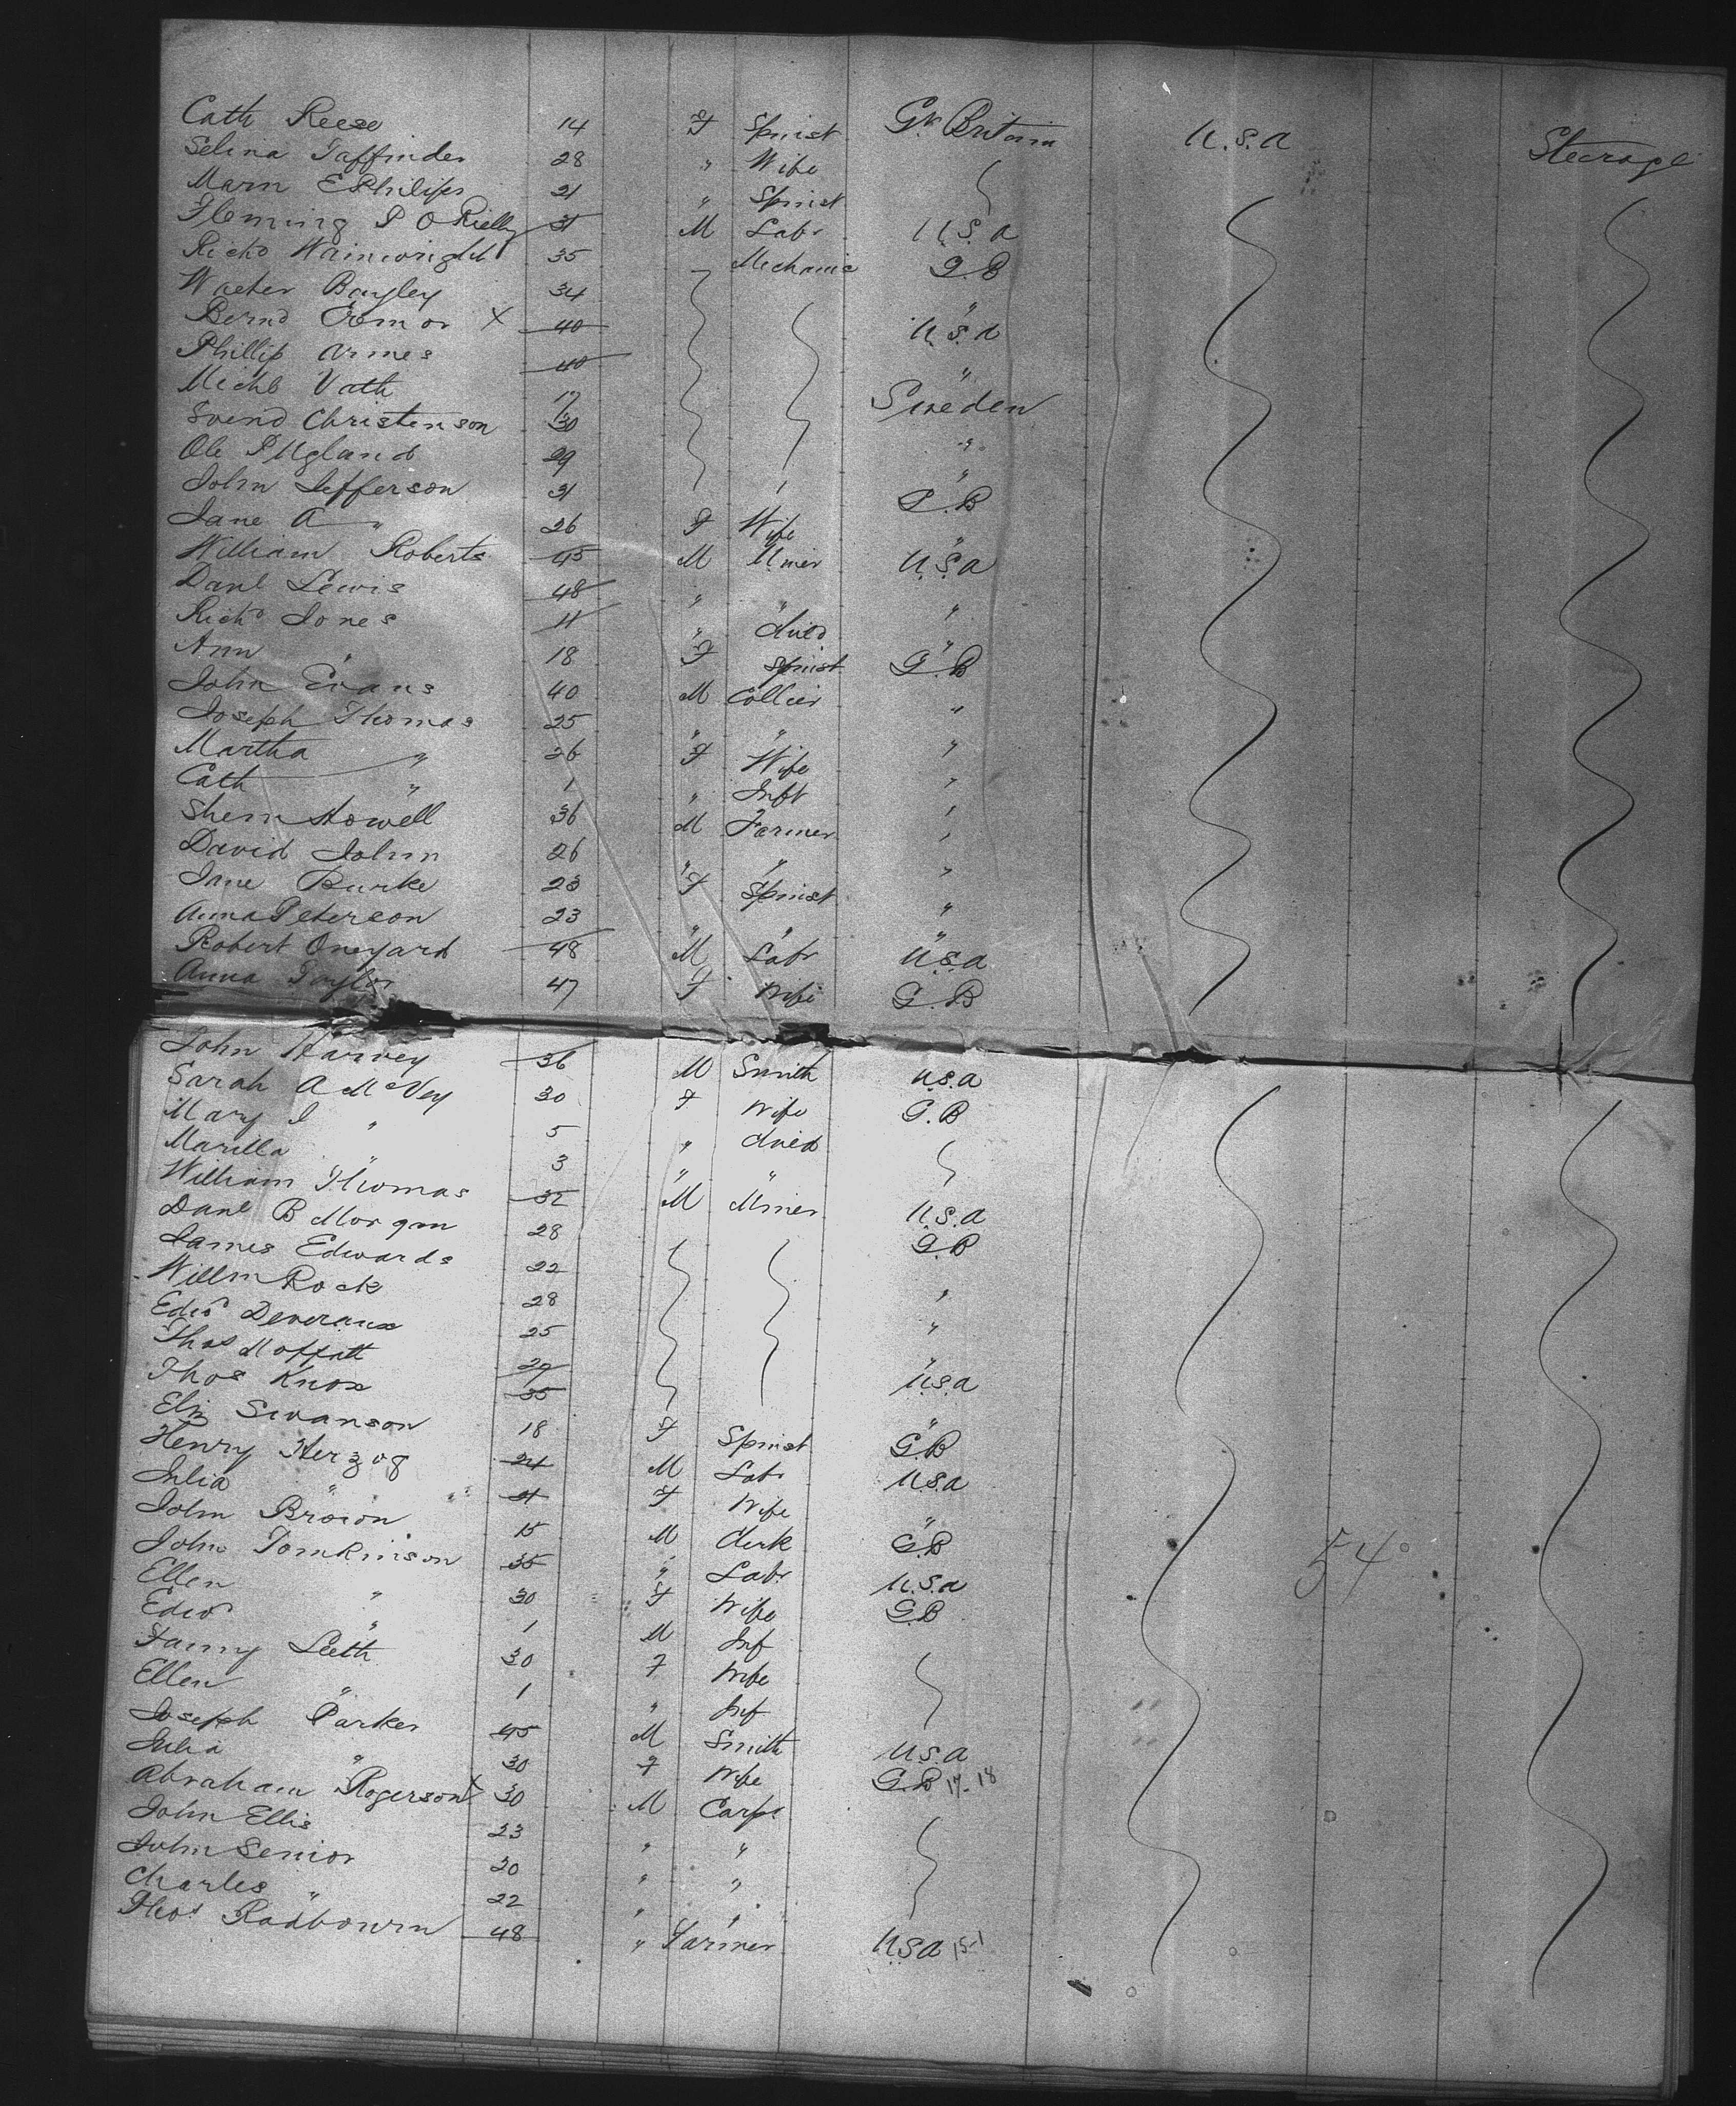 Cath Reese 14 F Spinst Gt Britain U.S.A Steerage
Selina Taffinder 28 " Wife
Marn E Philips 21 " Spinst
Fleming P O Rielly 31 M Labr U.S.A
Richd Wainwright 35 Mechanic G.B
Walter Bayley 34 "
Bernd X 40 U.S.A
Phillip Armes 40 "
Michl Vath 17 Sweden
Svend Christenson 30 "
Ole P Ugland 29 "
John Jefferson 31 G.B
Jane A " 26 F Wife "
William Roberts 45 M Miner U.S.A
Danl Lewis 48 " " "
Richd Jones 11 " child "
Ann " 18 F Spinst G.B
John Evans 40 M Collier "
Joseph Thomas 25 " " "
Martha " 26 F Wife "
Cath " 1 " Inft "
Shem Howell 36 M Farmer "
David John 26 " " "
Jane Burke 23 F Spinst "
Anna Peterson 23 " " "
Robert Oneyard 48 M Labr U.S.A
Anna Taylor 47 F Wife G.B
John Harvey 36 M Smith U.S.A
Sarah A McVey 30 F Wife G.B
Mary J " 5 " child
Marilla " 3 " "
William Thomas 32 M Miner U.S.A
Danl B Morgan 28 G.B
James Edwards 22 "
Willm Rock 28 "
Edwd Deveraux 25 "
Thos Moffatt 29 U.S.A
Thos Knox 35 "
Eliz Swanson 18 F Spinst G.B
Henry Herzog 24 M Labr U.S.A
Julia " 21 F Wife "
John Brown 15 M clerk G.B
John Tomkinson 35 " Labr U.S.A 54
Ellen " 30 F Wife G.B
Edwd " 1 M Inf
Fanny Leeth 30 F Wife
Ellen " 1 " Inf
Joseph Parker 45 M Smith U.S.A
Julia " 30 F Wife G.B 17-18
Abraham Rogerson X 30 M Carpr
John Ellis 23 " "
John Senior 20 " "
Charles " 22 " "
Thos Radbourn 48 " Farmer U.S.A 15-1